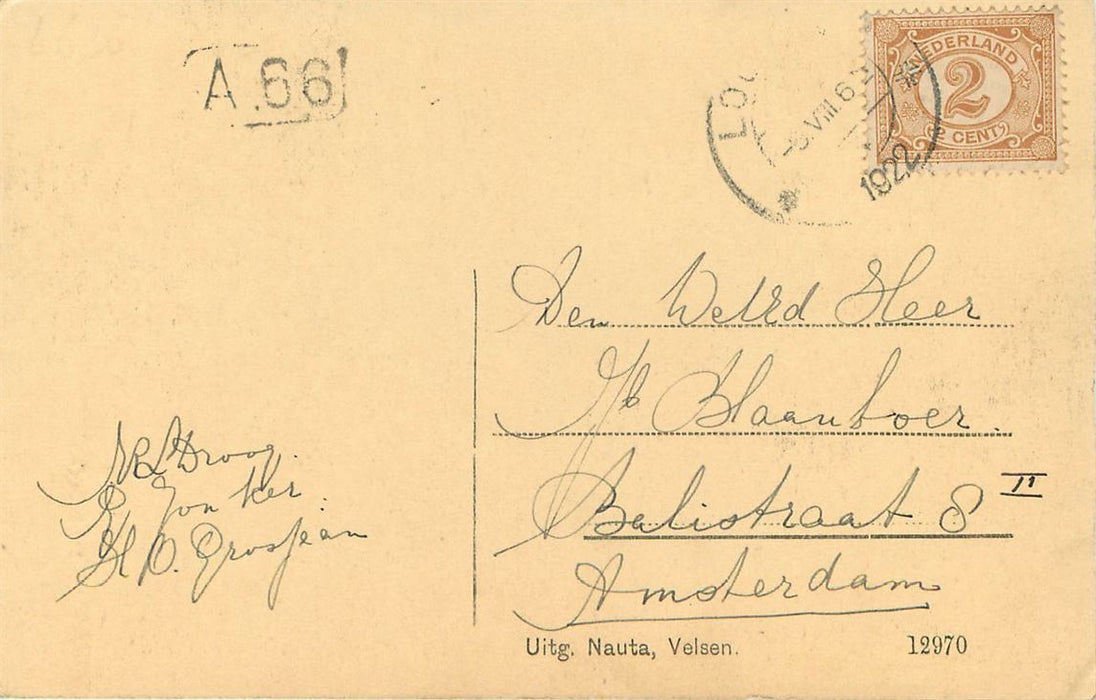 A.66
LOO
-6.VIII.6
1922
NEDERLAND
2
2 CENT
Den WelEd Heer
Jb Blaauboer.
Balistraat 8 II
Amsterdam
Droog.
Jonker.
Grosjean
Uitg. Nauta, Velsen.
12970